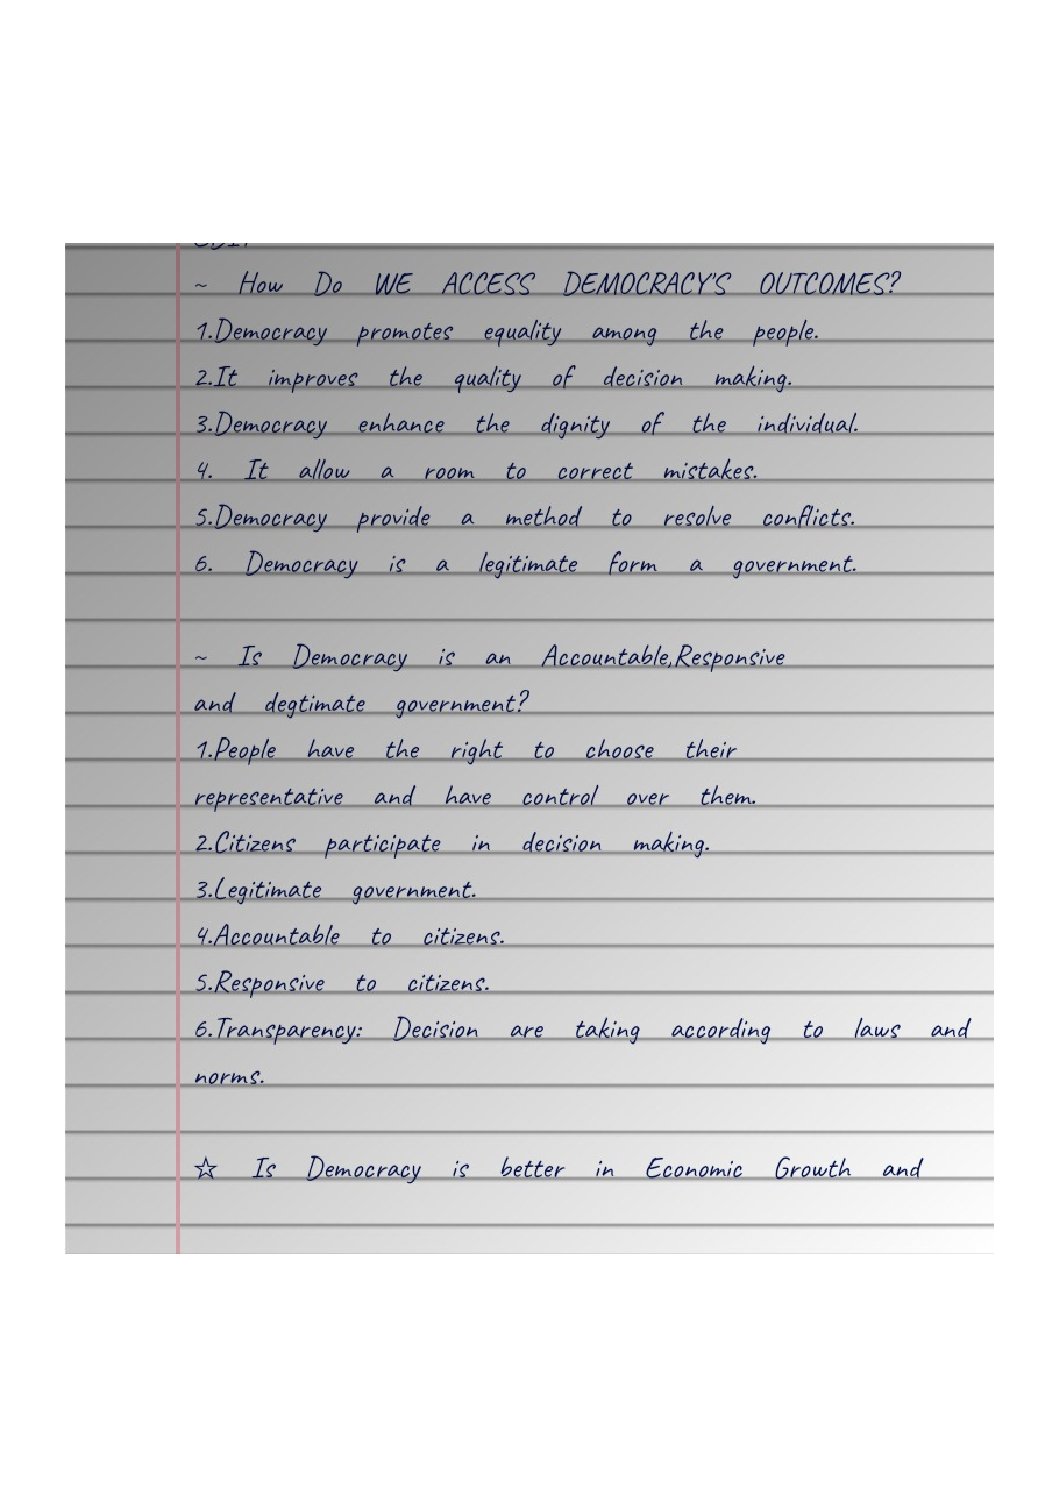 ~ How Do WE ACCESS DEMOCRACY'S OUTCOMES?
1.Democracy promotes equality among the people.
2.It improves the quality of decision making.
3.Democracy enhance the dignity of the individual.
4. It allow a room to correct mistakes.
5.Democracy provide a method to resolve conflicts.
6. Democracy is a legitimate form a government.
~ Is Democracy is an Accountable,Responsive
and degtimate government?
1.People have the right to choose their
representative and have control over them.
2.Citizens participate in decision making.
3.Legitimate government.
4.Accountable to citizens.
5.Responsive to citizens.
6.Transparency: Decision are taking according to laws and
norms.
☆ Is Democracy is better in Economic Growth and